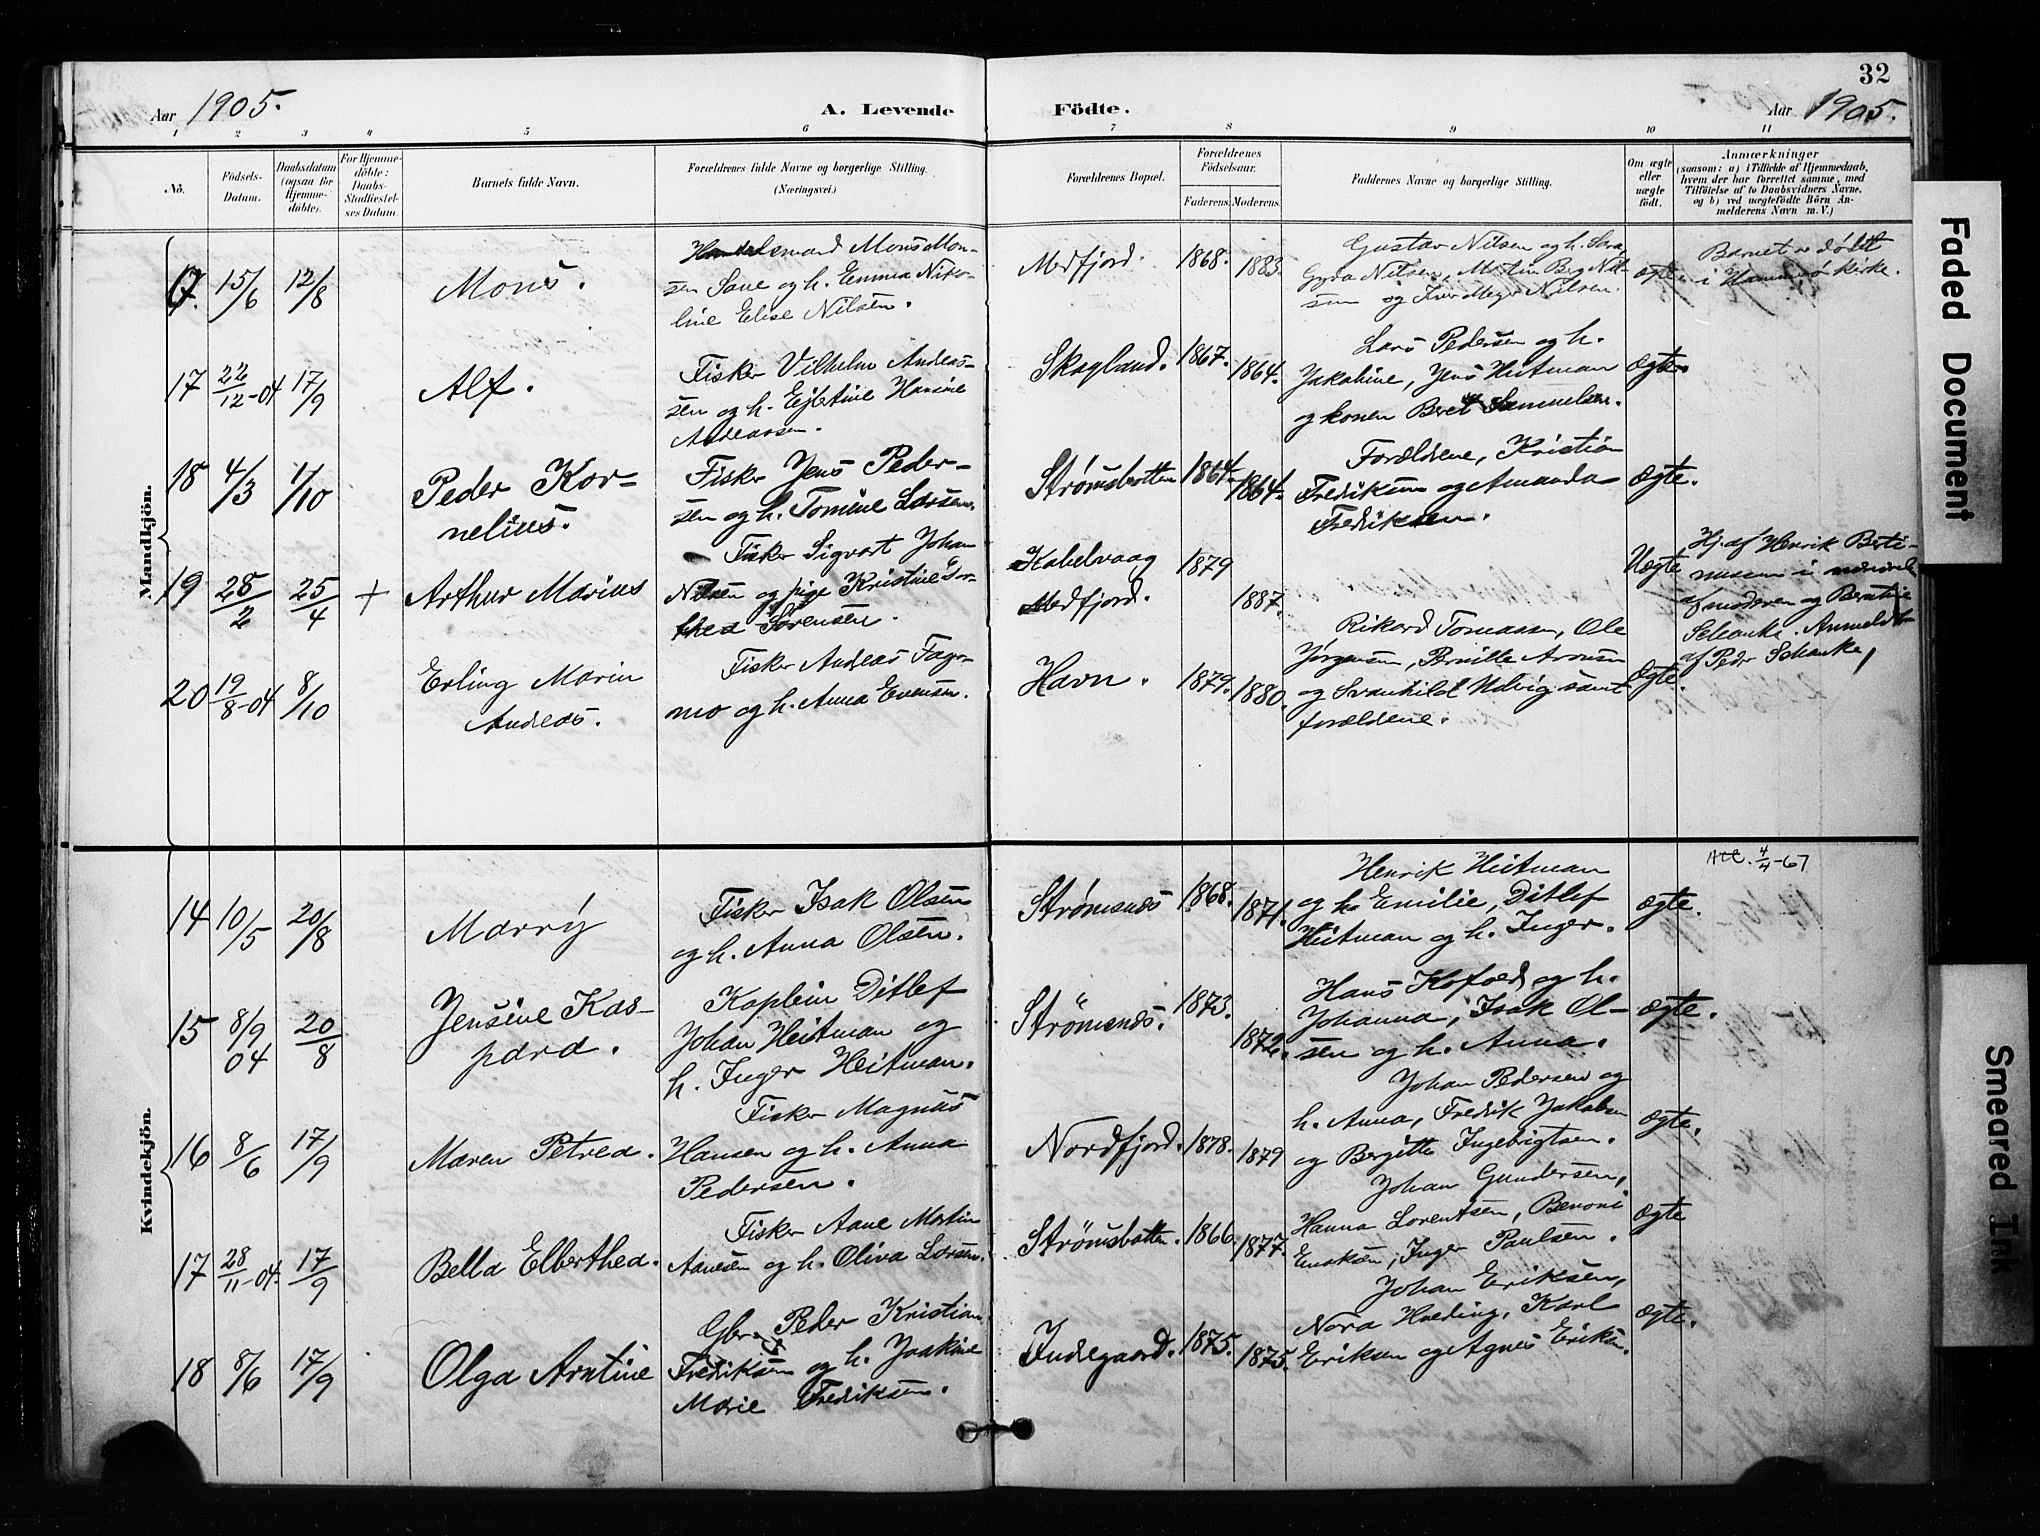 Aar 1905.
A. Levende Födte.
32
Aar 1905.
1 2 3 4 5 6 7 8 9 10 11
No.
Födsels-
Datum.
Daabsdatum
(ogsaa for
Hjemme-
döbte).
For Hjemme-
döbte:
Daabs-
Stadfæstel-
ses Datum.
Barnets fulde Navn.
Forældrenes fulde Navne og borgerlige Stilling.
(Næringsvei.)
Forældrenes Bopæl.
Forældrenes
Födselsaar.
Faderens.
Moderens.
Faddernes Navne og borgerlige Stilling.
Om ægte
eller
uægte
födt.
Anmærkninger
(saasom: a) i Tilfælde af Hjemmedaab,
hvem der har forrettet samme, med
Tilföielse af to Daabsvidners Navne.
og b) ved uægtefödte Börn An-
melderens Navn m. V.)
Mandkjön.
15/6 12/8
Mons.
Mons Mon-
sen Sane og h. Emma Niko-
line Elise Nilsen.
Medfjord. 1868. 1883.
Gustav Nilsen og h. Sara
Gyda Nilsen, Martin Berg Nil-
sen og Iver Meyer Nilsen.
ægte
Barnet er døbt
i Hammerø kirke.
17 22/12-04 17/9
Alf.
Fisker Vilhelm Andreas-
sen og h. Ejletine Hansine
Andreassen.
Skogland. 1867. 1864.
Lars Pedersen og h.
Jakobine, Jens Heitman
og konen Beret Samuelsen.
ægte.
18 4/3 1/10
Peder Kor-
nelius.
Fisker Jens Peder-
sen og h. Tomine Larsen.
Strømsbotten 1864. 1864.
Forældrene, Kristian
Fredriksen og Amanda
Fredriksen.
ægte.
19 28/2 25/4 +
Arthur Marius
Fisker Sigvart Johan
Nilsen og pige Kristine Dor-
thea Sørensen.
Kabelvaag 1879
Medfjord. 1887.
Uægte
Hj. af Henrik Berti-
nussen i nærværelse
af moderen og Berntine
Schanke. Anmeldt
af Peder Schanke,
20 19/8-04 8/10
Erling Marin
Andreas.
Fisker Andreas Fager-
mo og h. Anna Evensen.
Havn. 1879. 1880.
Rikard Tomassen, Ole
Jørgensen, Pernille Aronsen
og Svanhild Udvig samt
forældrene.
Ægte.
Kvindekjön.
14 10/5 20/8
Marry
Fisker Isak Olsen
og h. Anna Olsen.
Strømsnes 1868. 1871.
Henrik Heitman
og h. Emilie, Ditlef
Heitman og h. Inger.
ægte.
Att. 4/4-67
15 8/9 04 20/8
Jensine Kas-
para.
Kaptein Ditlef
Johan Heitman og
h. Inger Heitman.
Strømsnes. 1873. 1872.
Hans Kofoed og h.
Johanna, Isak Ol-
sen og h. Anna.
ægte.
16 8/6 17/9
Maren Petrea.
Fisker Magnus
Hansen og h. Anna
Pedersen.
Nordfjord. 1878. 1879
Johan Pedersen og
h. Anna, Fredrik Jakobsen
og Bergitte Ingebrigtsen.
ægte.
17 28/11-04. 17/9
Bella Elberthea.
Fisker Aane Martin
Aanesen og h. Oliva Larsen.
Strømsbotten. 1866. 1877.
Johan Gundersen,
Hanna Lorentsen, Benoni
Enoksen, Inger Paulsen.
ægte
18 8/6 17/9
Olga Arntine
Gbr. Peder Kristian
Fredriksen og h. Joakine
Marie Fredriksen.
Indregaard. 1875. 1875.
Johan Eriksen,
Nora Hveding, Karl
Eriksen og Agnes Eriksen.
ægte.
Faded Document
Smeared Ink